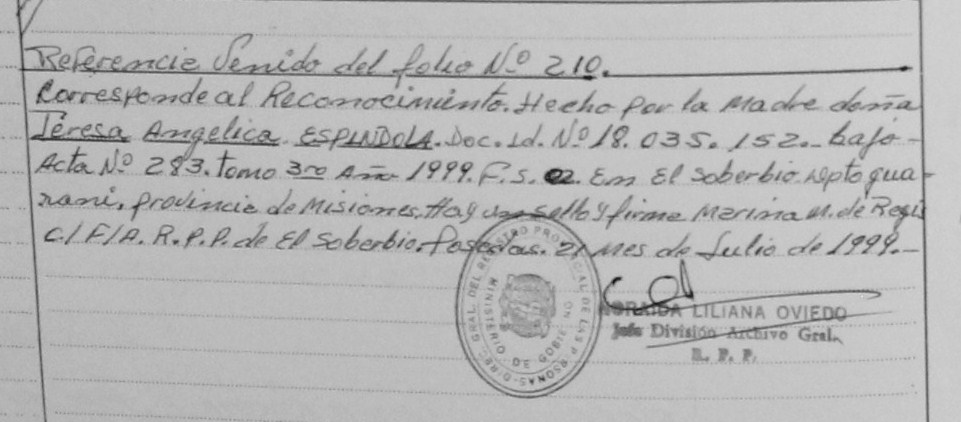 Referencia Venido del folio Nº 210.
Corresponde al Reconocimiento. Hecho por la Madre doña
Teresa Angelica ESPINDOLA. Doc. Id. Nº 18.035.152.- bajo
Acta Nº 283. tomo 3ro Año 1999. F.S. 02. Em El Soberbio Dpto gua-
rani, provincia de Misiones. Hay un sello y firma Marina M. de
C/F/A. R.P.P. de El Soberbio. Posadas. 21 Mes de Julio de 1999.-
DIREC. GRAL. DEL REGISTRO PROVINCIAL DE LAS PERSONAS
MINISTERIO DE GOBIERNO
LILIANA OVIEDO
Jefe División Archivo Gral.
R. P. P.